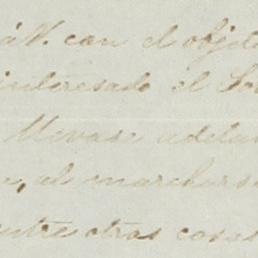 á V. con el objet
interesado el So
llevase adela
, al marchars
entre otras cosas